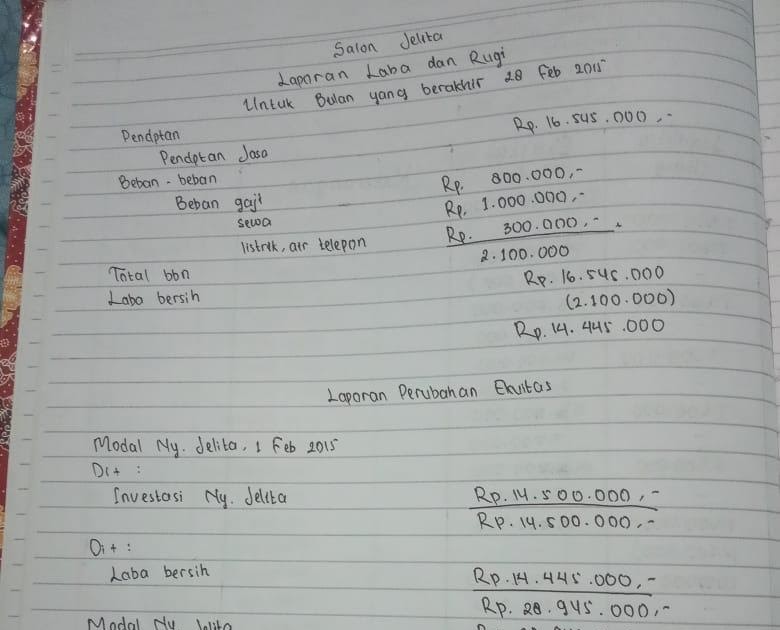 Salon Jelita
Laporan Laba dan Rugi
Untuk Bulan yang berakhir 28 Feb 2015
Pendptan
Pendptan Jasa Rp. 16.545.000,-
Beban-beban
Beban gaji Rp. 800.000,-
sewa Rp. 1.000.000,-
listrik, air telepon Rp. 300.000,-
Total bbn 2.100.000
Laba bersih Rp. 16.545.000
(2.100.000)
Rp. 14.445.000
Laporan Perubahan Ekuitas
Modal Ny. Jelita, 1 Feb 2015
Di+ :
Investasi Ny. Jelita Rp. 14.500.000,-
Rp. 14.500.000,-
Di+ :
Laba bersih Rp. 14.445.000,-
Rp. 28.945.000,-
Modal Ny Jelita